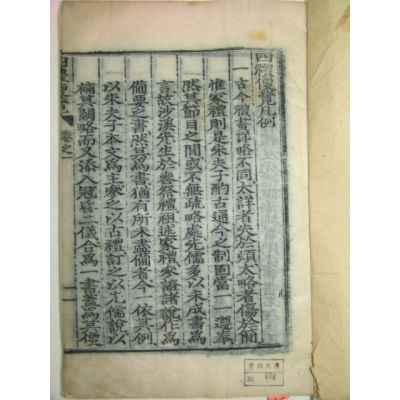 四禮便覽凡例
一古今禮書詳略不同太詳者失於煩太略者傷於簡
惟家禮則是朱夫子酌古通今之制固當一一遵奉
然其節目之間或不無疏略處先儒多以未成書爲
言故沙溪先生於喪祭禮祖述家禮家證諸說作爲
備要之書然其爲書猶有所未盡備者今一依其例
以朱夫子本文爲主參之以古禮訂之以先儒說以
補其闕略而又添入冠昏二儀合爲一書蓋爲其便
四禮便覽
卷之一
No.